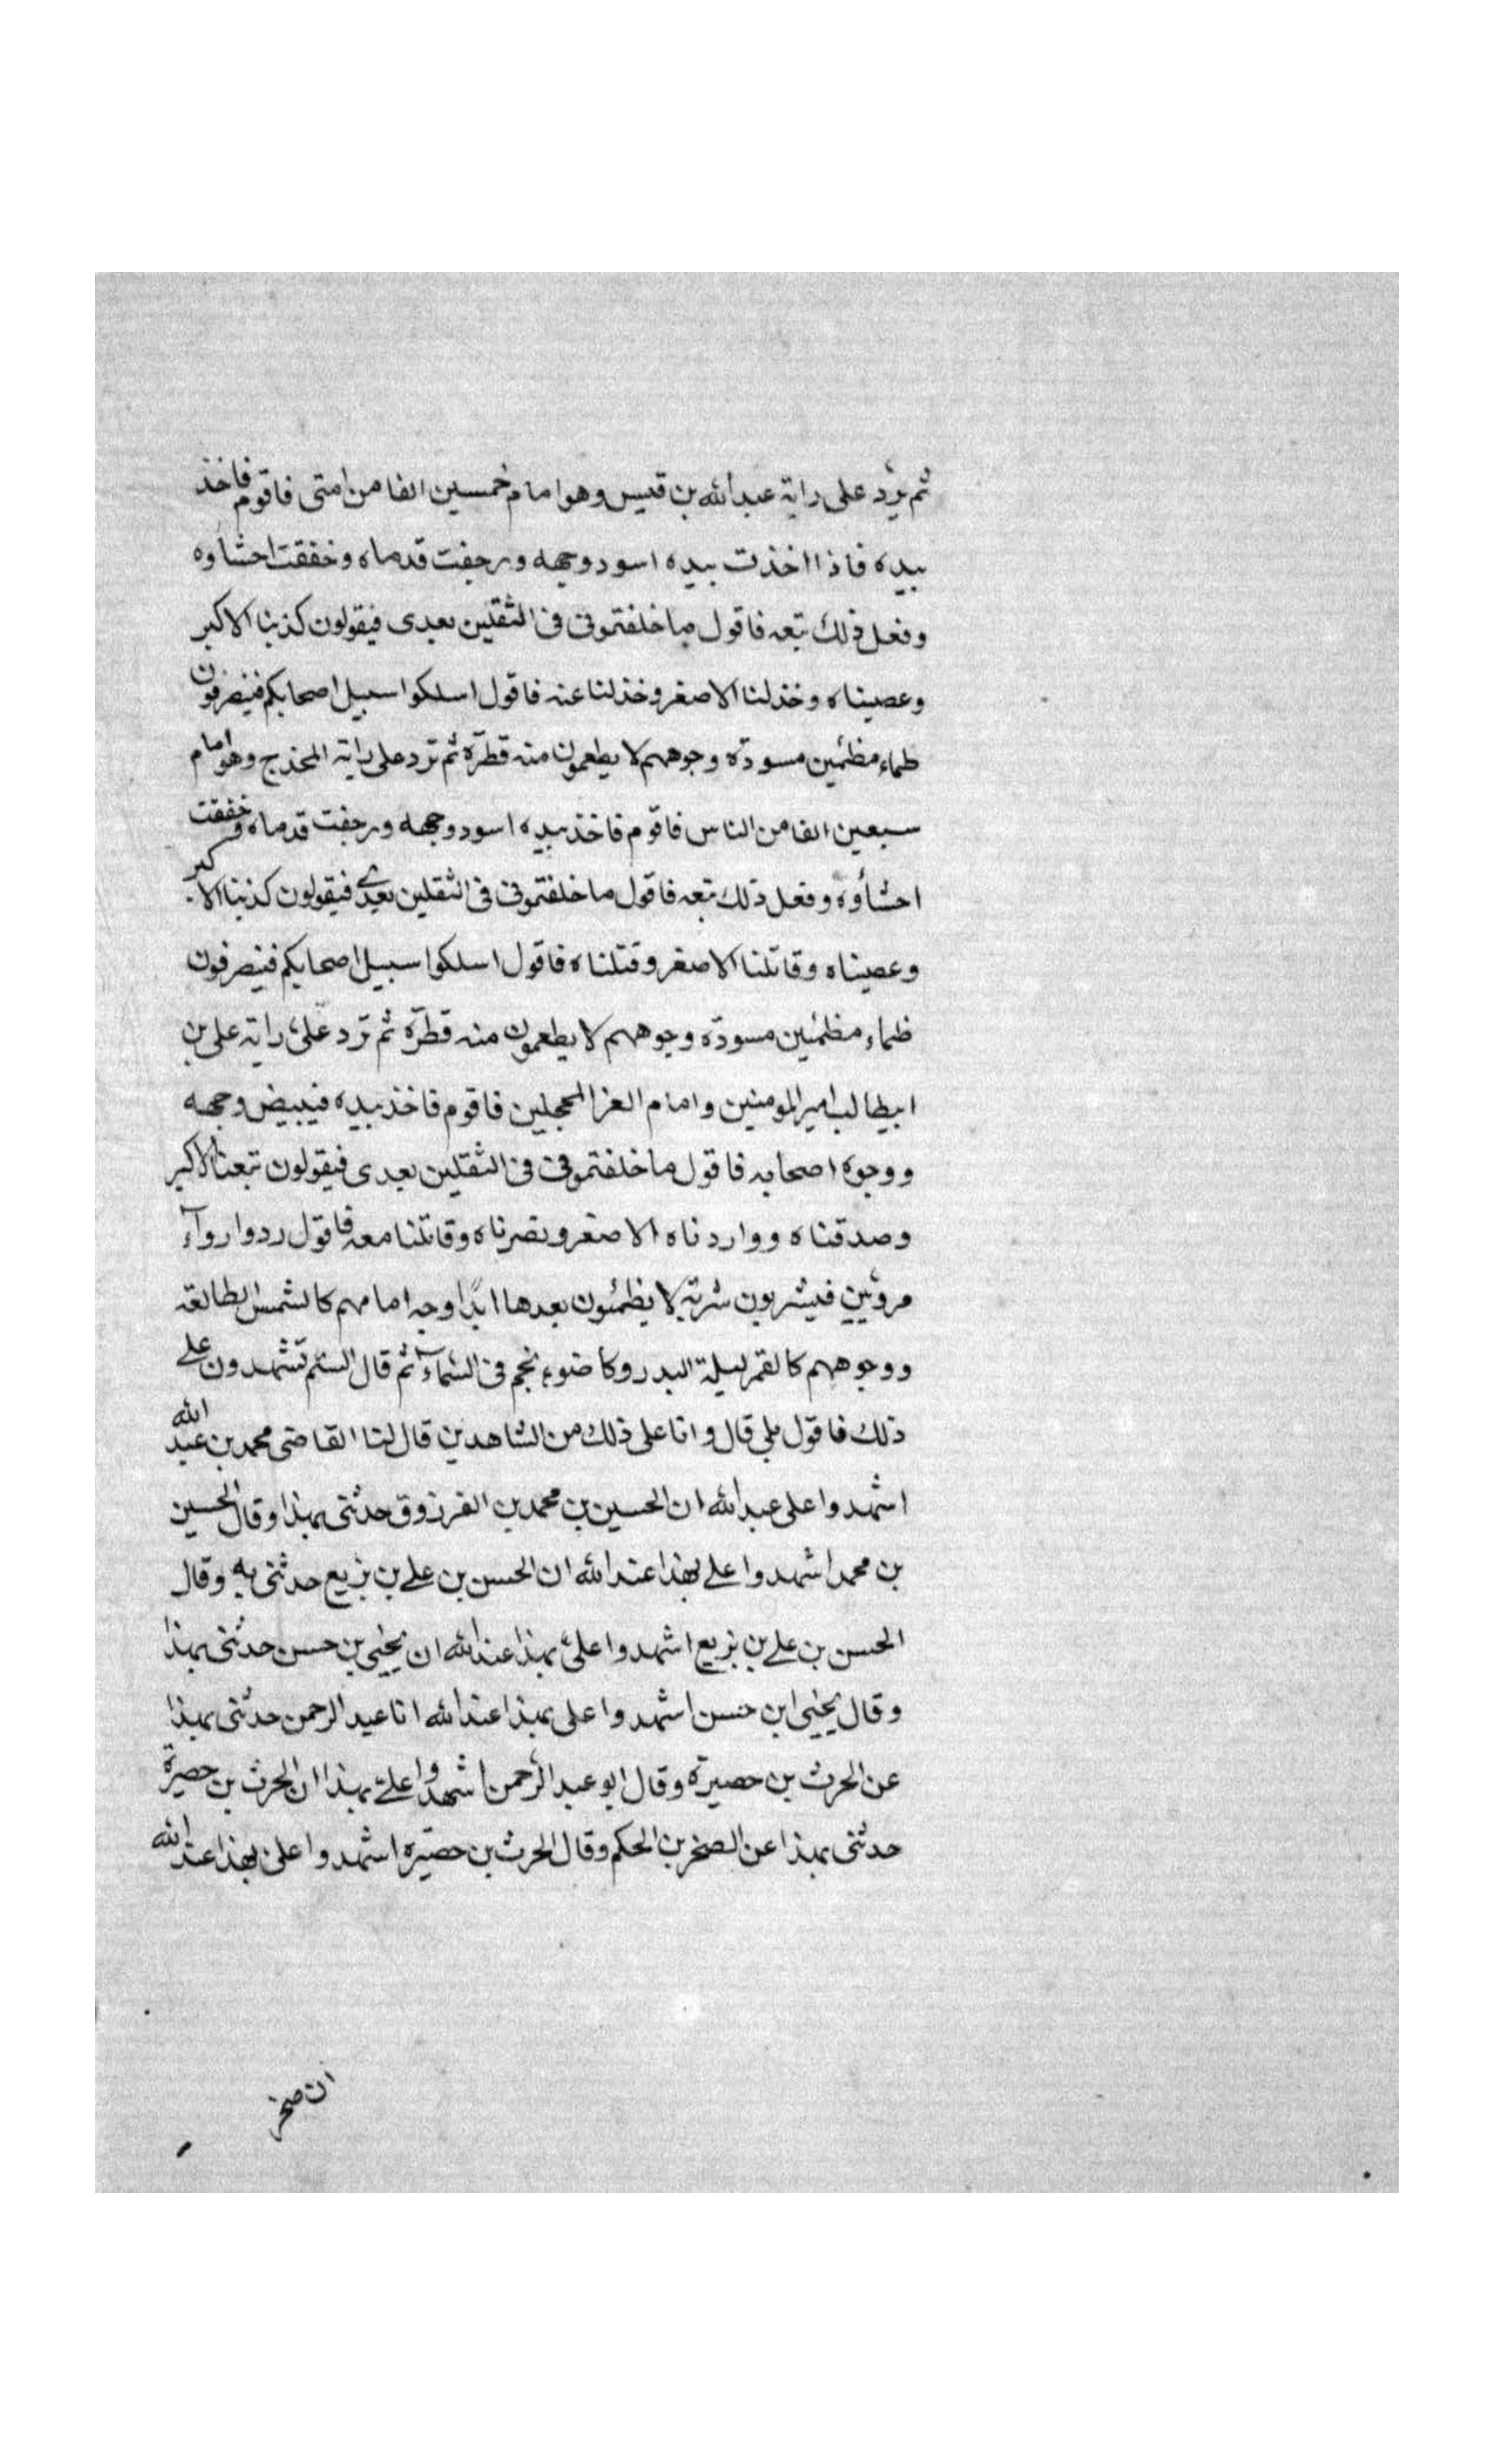 ثم يرد على راية عبدالله بن قيس وهو امام خمسين الفا من امتى فاقوم فاخذ
بيده فاذا اخذت بيده اسود وجهه ورجفت قدماه وخفقت احشاوه
وفعل ذلك تبعه فاقول ما خلفتمونى فى الثقلين بعدى فيقولون كذبنا الاكبر
وعصيناه وخذلنا الاصغر وخذلنا عنه فاقول اسلكوا سبيل اصحابكم فينصرفون
ظماء مظمئين مسودّة وجوههم لا يطعمون منه قطرة ثم ترد على راية المخدج وهو امام
سبعين الفا من الناس فاقوم فاخذ بيده اسود وجهه ورجفت قدماه وخفقت
احشأوه وفعل ذلك تبعه فاقول ما خلفتمونى فى الثقلين بعدي فيقولون كذبنا الاكبر
وعصيناه وقاتلنا الاصغر وقتلناه فاقول اسلكوا سبيل اصحابكم فينصرفون
ظماء مظمئين مسودّة وجوههم لا يطعمون منه قطرة ثم ترد علىّ راية على بن
ابيطالب امير المومنين وامام الغر المحجلين فاقوم فاخذ بيده فيبيض وجهه
ووجوه اصحابه فاقول ما خلفتمونى فى الثقلين بعدى فيقولون تبعنا الاكبر
وصدقناه ووازرناه الاصغر ونصرناه وقاتلنا معه فاقول ردوا روآء
مرويّين فيشربون شربة لا يظمئون بعدها ابدًا وجه امامهم كالشمس الطالعة
ووجوههم كالقمر ليلة البدر وكاضوء نجم فى السّماء ثم قال الستم تشهدون على
ذلك فاقول بلى قال وانا على ذلك من الشاهدين قال لنا القاضى محمد بن عبد الله
اشهدوا على عبدالله ان الحسين بن محمد بن الفرزوق حدثنى بهذا وقال الحسين
بن محمد اشهدوا على بهذا عند الله ان الحسن بن على بن بزيع حدثنى به وقال
الحسن بن على بن بزيع اشهدوا علىّ بهذا عند الله ان يحيى بن حسن حدثنى بهذا
وقال يحيى ابن حسن اشهدوا على بهذا عند الله انا عبد الرحمن حدثنى بهذا
عن الحرث بن حصيرة وقال ابو عبد الرّحمن اشهدوا علىّ بهذا ان الحرث بن حصيرة
حدثنى بهذا عن الصخر بن الحكم وقال الحرث بن حصيره اشهدوا على بهذا عند الله
ان صخر